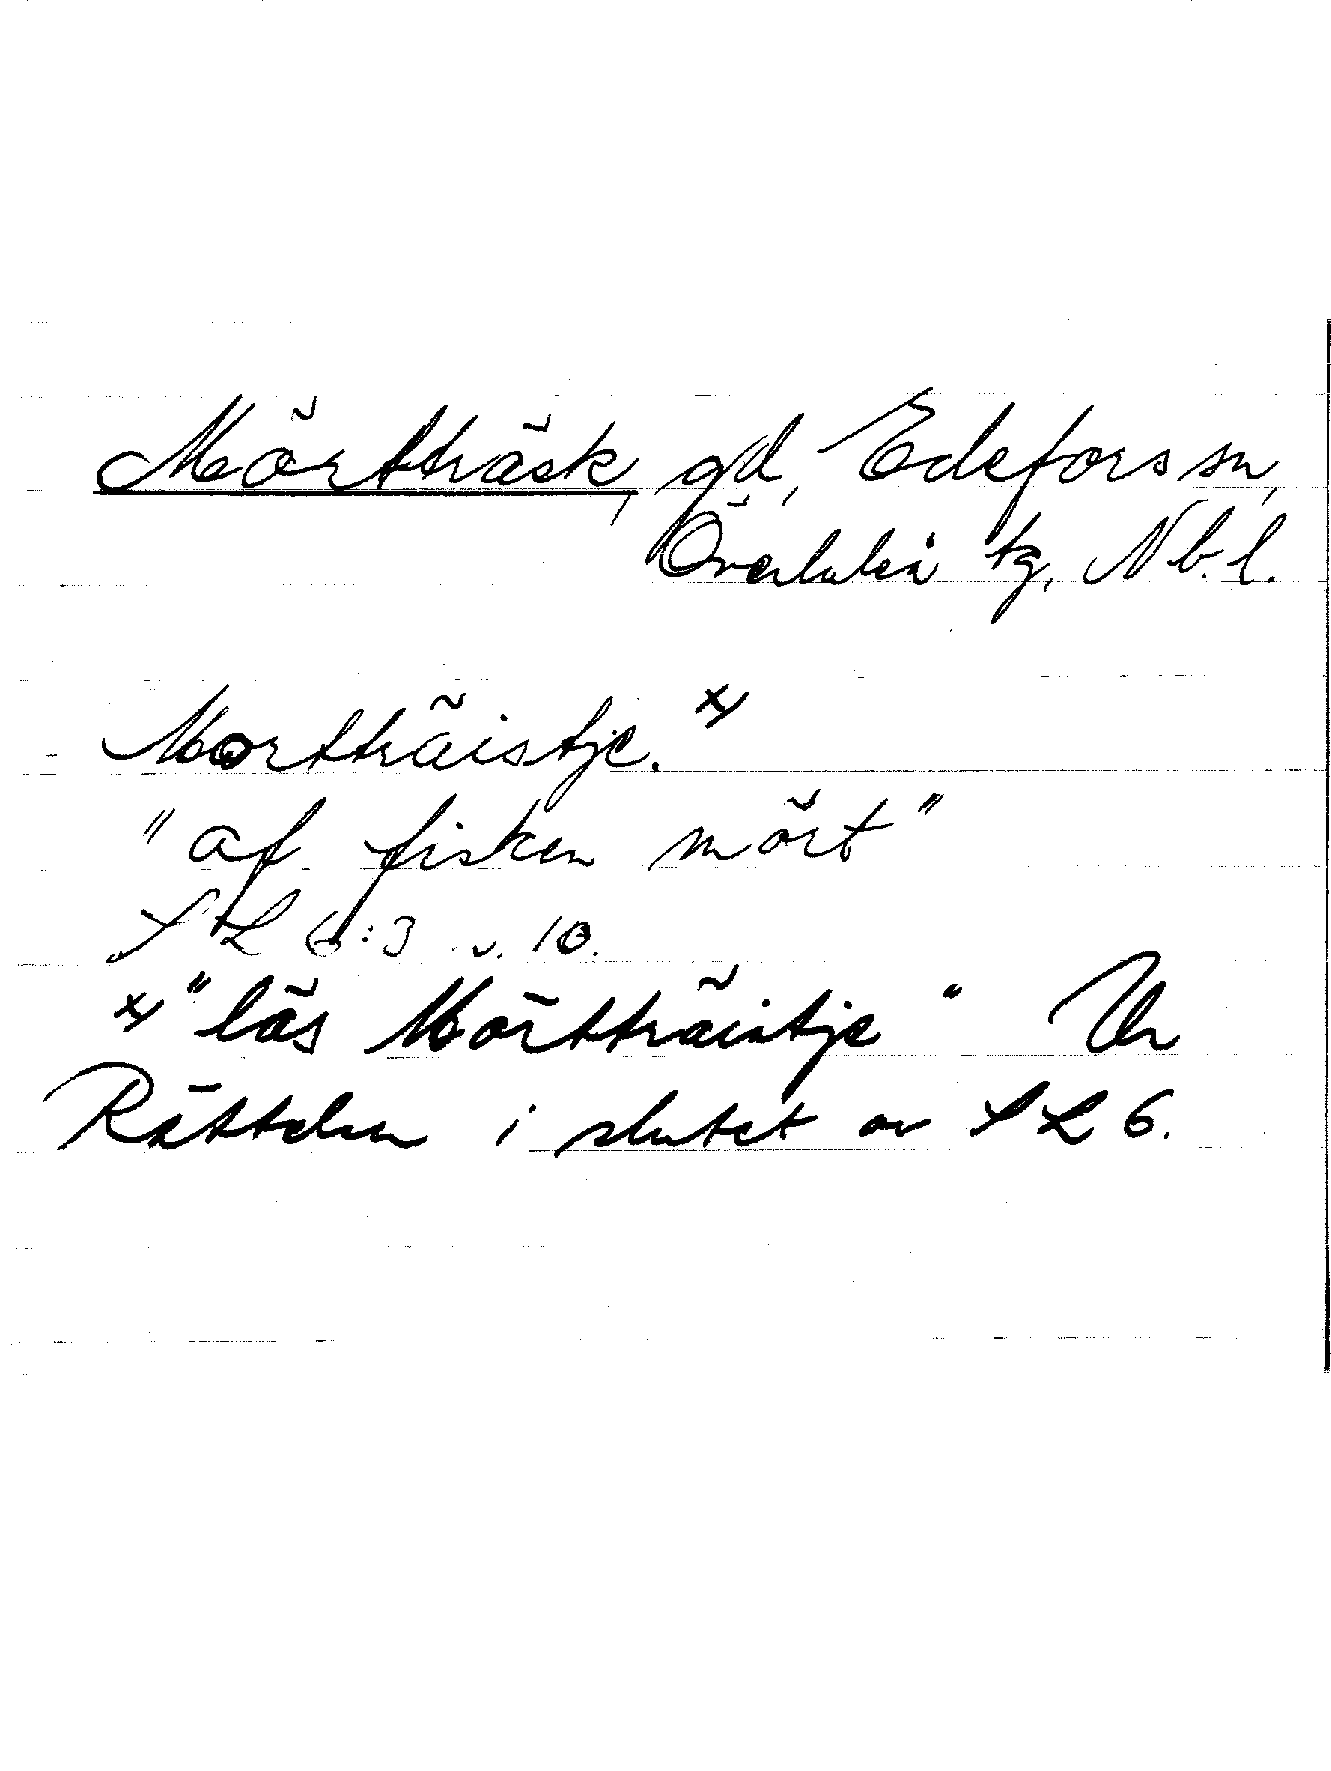 Mörtträsk, gd, Edefors sn,
Överluleå tg, Nb. l.
Mortträistje. x)
" af fisken mört"
SL 6:3 s. 10.
x) "läs Mörtträistje" Ur
Rättelser i slutet av SL 6.